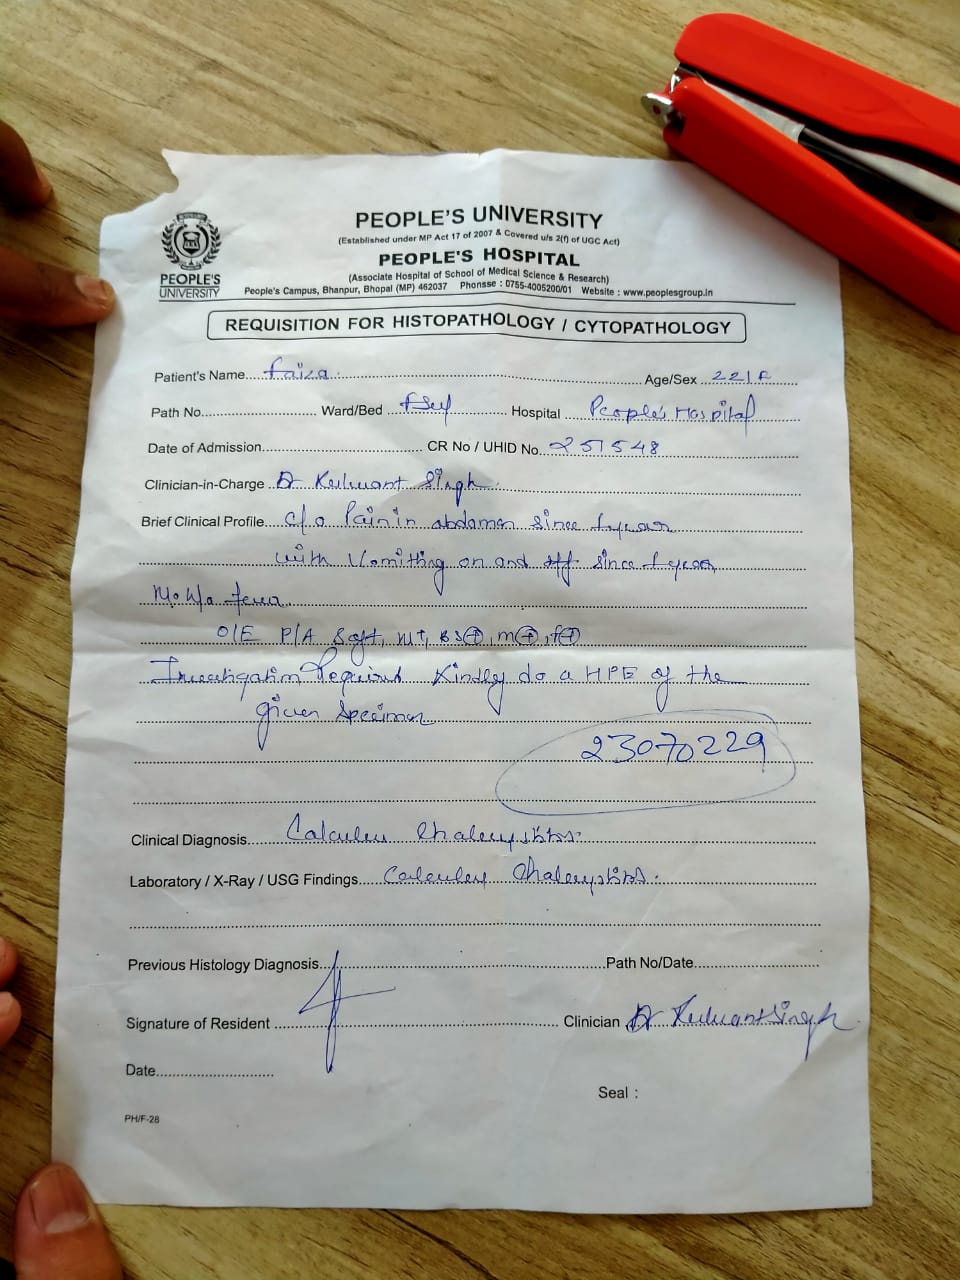 PEOPLE'S UNIVERSITY
(Established under MP Act 17 of 2007 & Covered u/s 2(f) of UGC Act)
PEOPLE'S HOSPITAL
(Associate Hospital of School of Medical Science & Research)
People's Campus, Bhanpur, Bhopal (MP) 462037 Phonsse : 0755-4005200/01 Website : www.peoplesgroup.in
PEOPLE'S
UNIVERSITY
REQUISITION FOR HISTOPATHOLOGY / CYTOPATHOLOGY
Patient's Name Faiza Age/Sex 22/F
Path No. Ward/Bed Hospital People's Hospital
Date of Admission CR No / UHID No. 251548
Clinician-in-Charge Dr Kulwant Singh
Brief Clinical Profile c/o Pain in abdomen since 1 year
with Vomithng on and off since 1 year
O/E P/A Soft,
Investigation Required Kindly do a HPE of the
given specimen
23070229
Clinical Diagnosis
Laboratory / X-Ray / USG Findings
Previous Histology Diagnosis Path No/Date
Signature of Resident Clinician Dr Kulwant Singh
Date
Seal :
PH/F-28